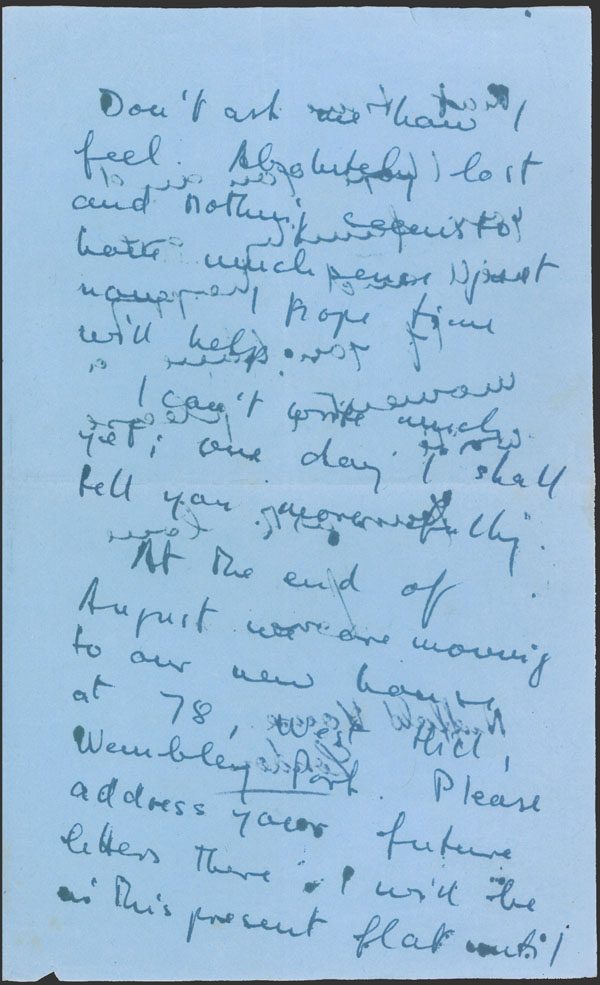 Don't ask me how I
feel. Absolutely lost
and nothing seems to
have much sense just
now, I hope time
will help.
I can't write much
yet; one day I shall
tell you more fully.
At the end of
August we are moving
to our new house
at 78, West Hill,
Wembley Park. Please
address your future
letters there. I will be
in this present flat until